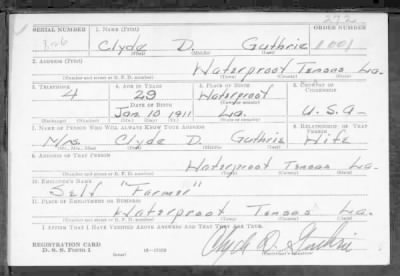 272
SERIAL NUMBER 1. NAME (Print) ORDER NUMBER
Clyde D. Guthrie 1001
(First) (Middle) (Last)
2. ADDRESS (Print)
Waterproof Tensas La.
(Number and street or R. F. D. number) (Town) (County) (State)
3. TELEPHONE 4. AGE IN YEARS 5. PLACE OF BIRTH 6. COUNTRY OF CITIZENSHIP
4 29 Waterproof
DATE OF BIRTH (Town or county)
Jan 10 1911 La. U.S.A.
(Exchange) (Number) (Mo.) (Day) (Yr.) (State or country)
7. NAME OF PERSON WHO WILL ALWAYS KNOW YOUR ADDRESS 8. RELATIONSHIP OF THAT PERSON
Mrs. Clyde D. Guthrie Wife
(Mr., Mrs., Miss) (First) (Middle) (Last)
9. ADDRESS OF THAT PERSON
Waterproof Tensas La.
(Number and street or R. F. D. number) (Town) (County) (State)
10. EMPLOYER'S NAME
Self "Farmer"
11. PLACE OF EMPLOYMENT OR BUSINESS
Waterproof Tensas La.
(Number and street or R. F. D. number) (Town) (County) (State)
I AFFIRM THAT I HAVE VERIFIED ABOVE ANSWERS AND THAT THEY ARE TRUE.
REGISTRATION CARD
D. S. S. FORM 1 (over) Clyde D. Guthrie
(Registrant's signature)